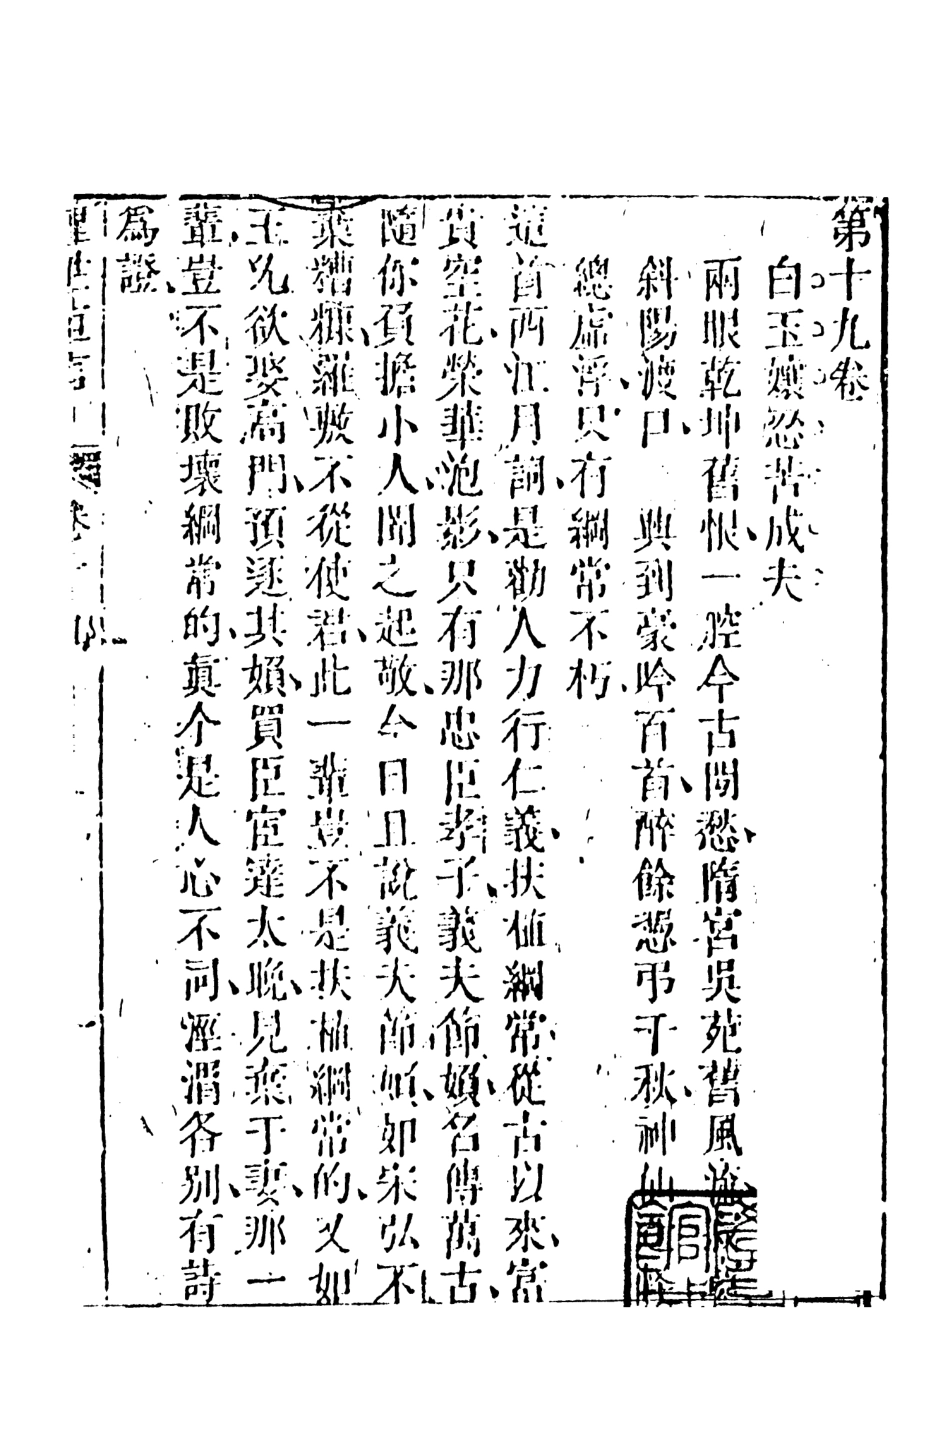 第十九卷
白玉孃忍苦成夫
兩眼乾坤舊恨、一腔今古閒愁、隋宮吳苑舊風流
斜陽渡口、　興到豪吟百首、醉餘憑弔千秋、神仙
總虛浮、只有綱常不朽、
這首西江月詞、是勸人力行仁義、扶植綱常、從古以來、富
貴空花、榮華泡影、只有那忠臣孝子、義夫節婦、名傳萬古、
隨你負擔小人、聞之起敬、今日且說義夫節婦、如宋弘不
棄糟糠、羅敷不從使君、此一輩豈不是扶植綱常的、又如
王允欲娶高門、預逐其婦、買臣宦達太晚、見棄于妻、那一
輩豈不是敗壞綱常的、眞个是人心不同、涇渭各別、有詩
為證、
醒世恒言　卷十九